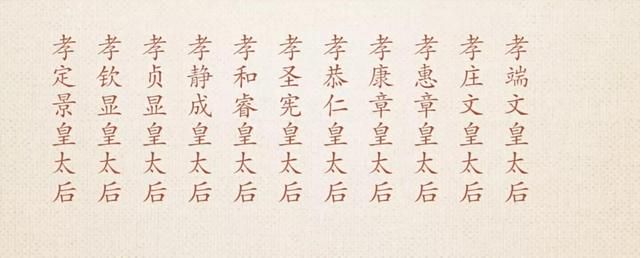 孝端文皇太后
孝庄文皇太后
孝惠章皇太后
孝康章皇太后
孝恭仁皇太后
孝圣宪皇太后
孝和睿皇太后
孝静成皇太后
孝贞显皇太后
孝钦显皇太后
孝定景皇太后